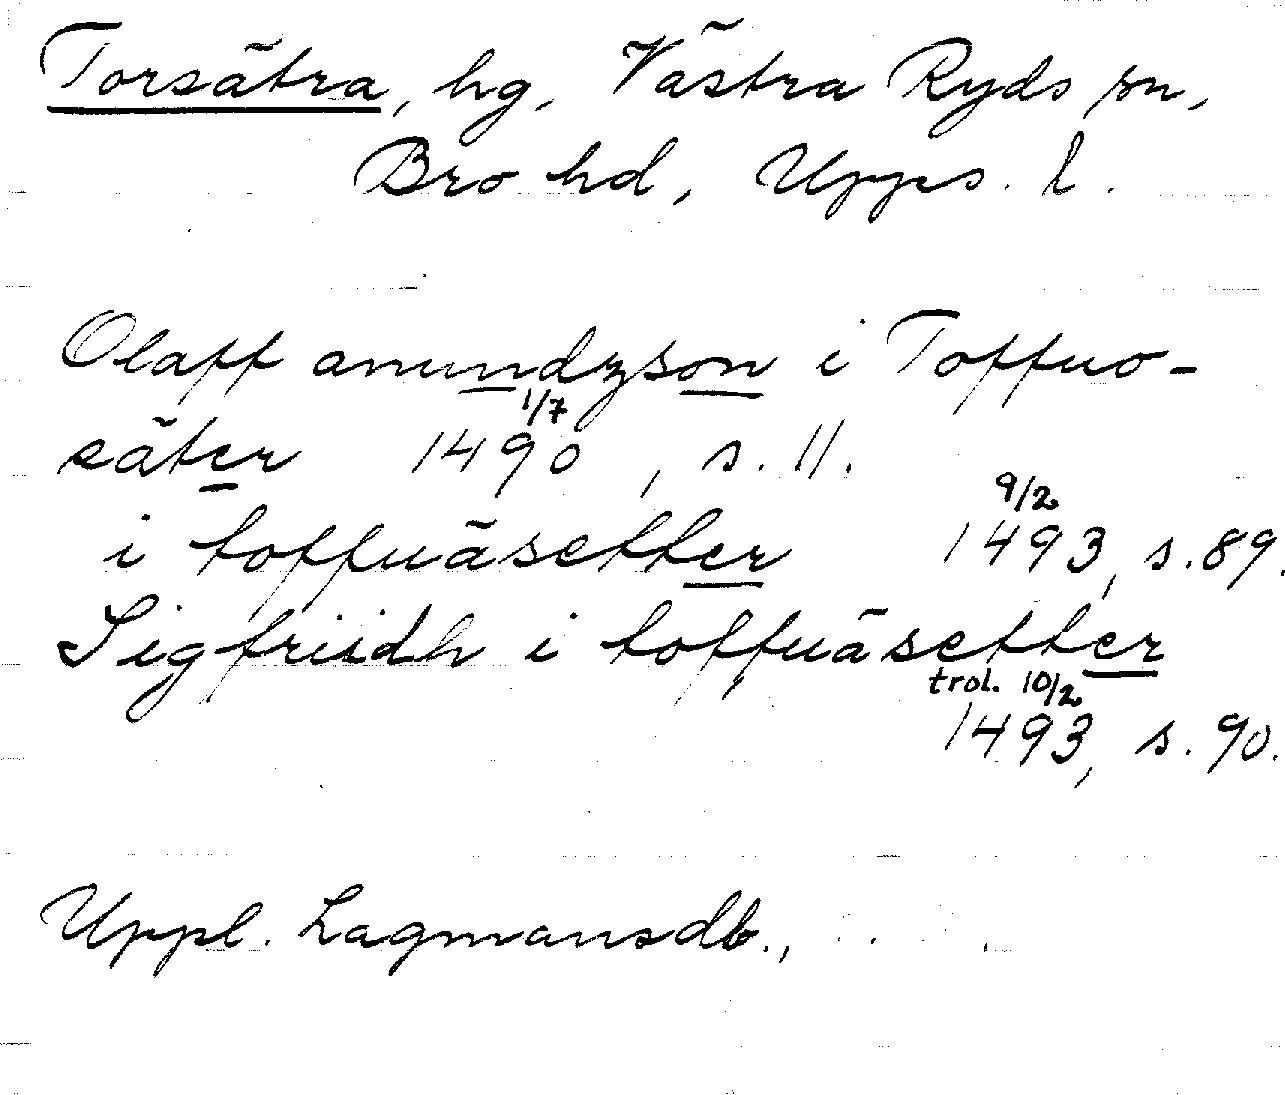 Torsätra, hg, Västra Ryds sn,
Bro hd, Upps. l.
Olaff anundzson i Toffuo-
säter 1490 1/7, s. 11.
i toffuäsetter 1493 9/2, s. 89.
Sigfriidh i toffuäsetter
trol. 10/2
1493, s. 90.
Uppl. Lagmansdb.,